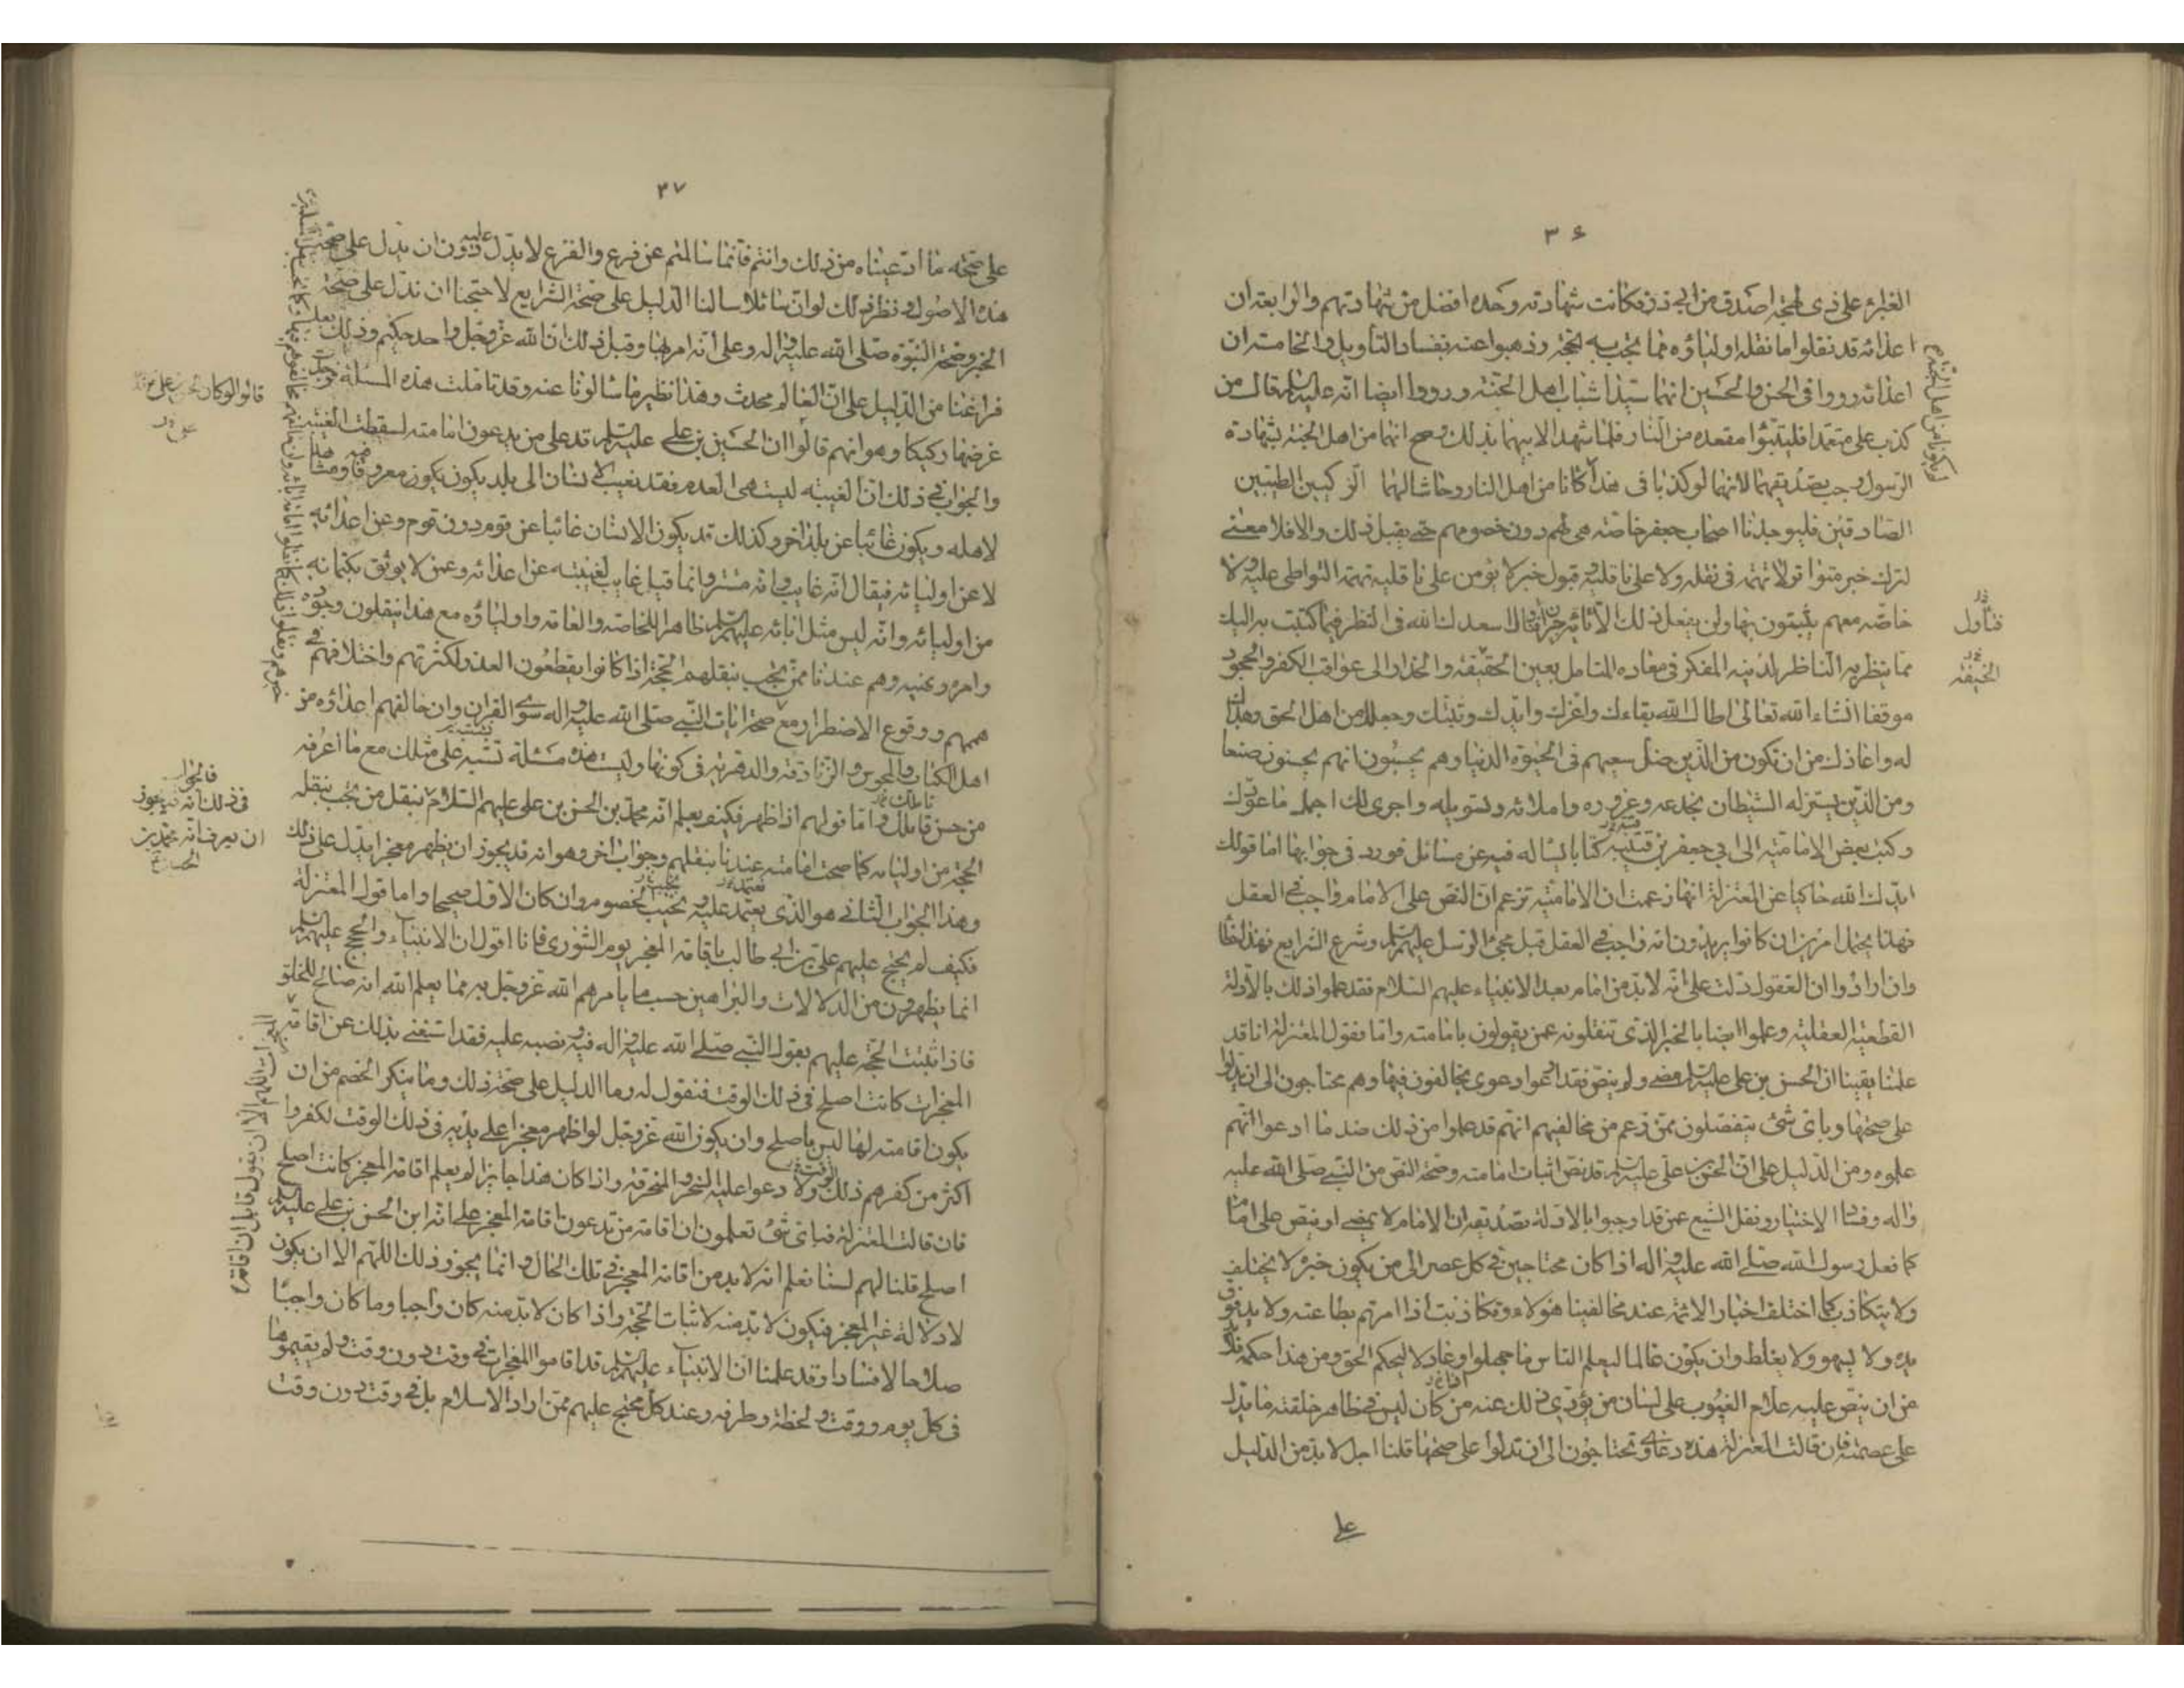 ٣۶
الغبراء على ذى لهجة اصدق من ابى ذر فكانت شهادته وحده افضل من شهادتهم والرابعة ان
اعدائه قد نقلوا ما نقله اولياؤه مما يجب به الحجة وذهبوا عنه بفساد التأويل والخامسة ان
اعدائه رووا فى الحسن والحسين انهما سيدا شباب اهل الجنة ورووا ايضا انه عليه السلم قال من
كذب على متعمدا فليتبوّأ مقعده من النار فلما شهدا لابيهما بذلك وصح انهما من اهل الجنة بشهادة
الرسول وجب تصديقهما لانهما لو كذبا فى هذا لكانا من اهل النار وحاشا لهما الزكيين الطيبين
الصادقين فليوجدنا اصحاب جعفر خاصة هى لهم دون خصومهم حتى يقبل ذلك والا فلا معنى
لترك خبر متواتر لا تهمة فى نقله ولا على ناقليه وقبول خبر لا يؤمن على ناقليه تهمة التواطى عليه ولا
خاصة معهم يثبتون بها ولن يفعل ذلك الا تائه حيران فتأمل اسعدك الله فى النظر فيما كتبت به اليك
مما ينظر به الناظر لدينه المفكر فى معاده المتامل بعين الخيفة والحذار الى عواقب الكفر والجحود
موفقا انشاء الله تعالى اطال الله بقاءك واعزك وايدك وثبتك وجعلك من اهل الحق وهداك
له واعاذك من ان تكون من الذين ضل سعيهم فى الحيوة الدنيا وهم يحسبون انهم يحسنون صنعا
ومن الذين يستزله الشيطان بخدعه وغروره واملائه وتسويله واجرى لك اجمل ما عودك
وكتب بعض الامامية الى ابى جعفر بن قبة كتابا يسأله فيه عن مسائل فورد فى جوابها اما قولك
ايدك الله حاكيا عن المعتزلة انها زعمت ان الامامية تزعم ان النص على الامام واجب فى العقل
فهذا يحتمل امرين ان كانوا يريدون انه واجب فى العقل قبل مجئ الرسل عليهم السلم وشرع الشرايع فهذا خطأ
وان ارادوا ان العقول دلت على انه لا بد من امام بعد الانبياء عليهم السلام فقد علموا ذلك بالادلة
القطعية العقلية وعلموا ايضا بالخبر الذى ينقلونه عمن يقولون بامامته واما قول المعتزلة انا قد
علمنا يقينا ان الحسن بن على عليه السلم مضى ولم ينص فقد ادعوا دعوى يخالفون فيها وهم محتاجون الى ان يدلوا
على صحتها وباى شئ ينفصلون ممن زعم من مخالفيهم انهم قد علموا من ذلك ضد ما ادعوا انهم
علموه ومن الدليل على ان الحسن بن على عليه السلم قد نص اثبات امامته وصحة النص من النبى صلى الله عليه
واله وفساد الاختيار ونقل الشيع عمن قد اوجبوا بالادلة تصديقه ان الامام لا يمضى او ينص على امام
كما فعل رسول الله صلى الله عليه واله اذ كان محتاجين فى كل عصر الى من يكون خبره لا يختلف
ولا يتكاذب كما اختلف اخبار الائمة عند مخالفينا هؤلاء وتكاذبت اذا امر ائتم بطاعته ولا يد فوق
يده ولا يسهو ولا يغلط وان يكون عالما ليعلم الناس ما جهلوا وعادلا ليحكم الحق ومن هذا حكمه فلا بد
من ان ينص عليه علام الغيوب على لسان من يؤدى ذلك عنه من كان ليس فى ظاهر خلقته ما يدل
على عصمته فان قالت المعتزلة هذه دعاوى تحتاجون الى ان تدلوا على صحتها قلنا اجل لا بد من الدليل
على
فتأول
الخيفة
٣٧
على صحة ما ادعيناه من ذلك وانتم فانما سألتم عن فرع والفرع لا يدل عليه دون ان يدل على صحة
هذه الاصول ونظير ذلك لو ان سائلا سالنا الدليل على صحة الشرايع لاحتجنا ان ندل على صحة
الخبر وصحة النبوة صلى الله عليه واله وعلى انه امر بها وقبل ذلك ان الله عز وجل واحد حكيم وذلك بعد
فراغنا من الدليل على ان العالم محدث وهذا نظير ما سالونا عنه وقد تاملت هذه المسئلة فوجدت
غرضها ركيكا وهو انهم قالوا ان الحسن بن على عليه السلم قد على من يدعون امامته لسقطت الغيبة
والجواب فى ذلك ان الغيبة ليست هى العدم فقد يغيب الانسان الى بلد يكون معروفا فيه ومشاهدا
لاهله ويكون غائبا عن بلد اخر وكذلك قد يكون الانسان غائبا عن قوم دون قوم وعن اعدائه
لا عن اوليائه فيقال انه غايب وانه مستتر وانما قيل غايب لغيبته عن اعدائه وعمن لا يوثق بكتمانه
من اوليائه وانه ليس مثل ابائه عليهم السلم ظاهرا للخاصة والعامة واولياؤه مع هذا ينقلون وجوده
وامره ونهيه وهم عندنا ممن يجب بنقلهم الحجة اذا كانوا يقطعون العذر لكثرتهم واختلافهم فى
هممهم ووقوع الاضطرار مع خبرهم
صحة ايات النبى صلى الله عليه واله سوى القران وان خالفهم اعداؤه من
اهل الكتاب والمجوس والزنادقة والدهرية فى كونها وليست هذه مسئلة تشتبه على مثلك مع ما اعرفه
من حسن تاملك واما قولهم اذا ظهر فكيف يعلم انه محمد بن الحسن بن على عليهم السلام بنقل من يجب بنقله
الحجة من اوليائه كما صحت امامته عندنا بنقلهم وجواب اخر وهو انه قد يجوز ان يظهر معجزا يدل على ذلك
وهذا الجواب الثانى هو الذى يعتمد عليه ويجيب الخصوم وان كان الاول صحيحا واما قول المعتزلة
فكيف لم يحتج عليهم على بن ابى طالب باقامة المعجز يوم الشورى فانا اقول ان الانبياء والحجج عليهم السلم
انما يظهرون من الدلالات والبراهين حسب ما يامرهم الله عز وجل به مما يعلم الله انه صالح للخلق
فاذا ثبتت الحجة عليهم بقول النبى صلى الله عليه واله فيه ونصبه عليه فقد استغنى بذلك عن اقامة
المعجزات كانت اصلح فى ذلك الوقت فنقول له وما الدليل على صحة ذلك وما ينكر الخصم من ان
يكون اقامته لها ليس باصلح وان يكون الله عز وجل لو اظهر معجزا على يديه فى ذلك الوقت لكفروا
اكثر من كفرهم ذلك الوقت ولادعوا عليه السحر والمخرقة واذا كان هذا جايزا لم يعلم اقامة المعجز كانت اصلح
فان قالت المعتزلة فباى شئ تعلمون ان اقامة من تدعون اقامة المعجز على انه ابن الحسن بن على عليه السلم
اصلح قلنا لهم لسنا نعلم انه لا بد من اقامة المعجز فى تلك الحال وانما يجوز ذلك اللهم الا ان يكون
لا دلالة غير المعجز فيكون لا بد منه لاثبات الحجة واذا كان لا بد منه كان واجبا وما كان واجبا
صلاحا لا فسادا وقد علمنا ان الانبياء عليهم السلم قد اقاموا المعجزات فى وقت دون وقت ولم يقيموها
فى كل يوم ووقت ولحظة وطرفة وعند كل محتج عليهم ممن اراد الاسلام بل فى وقت دون وقت
فالجواب
فى ذلك انه قد يجوز
ان يعرف انه محمد بن
الحسن
المعجزات اللهم الا ان يقول قايل ان اقامة